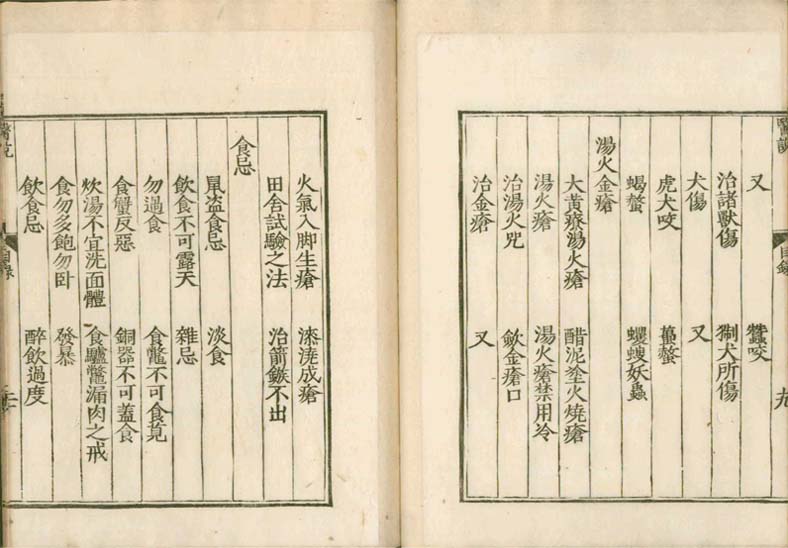 醫說 目錄
又 蠶咬
治諸獸傷 猘犬所傷
犬傷 又
虎犬咬 蠆螫
蝎螫 蠼螋妖蟲
湯火金瘡
大黄療湯火瘡 醋泥塗火燒瘡
湯火瘡 湯火瘡禁用冷
治湯火呪 歛金瘡口
治金瘡 又
火氣入脚生瘡 漆澆成瘡
田舍試驗之法 治箭鏃不出
食忌
鼠盗食忌 淡食
飲食不可露天 雜忌
勿過食 食鼈不可食莧
食蟹反惡 銅器不可蓋食
炊湯不宜洗面體 食驢鼈漏肉之戒
食勿多飽勿卧 發暴
飲食忌 醉飲過度
醫說 目錄